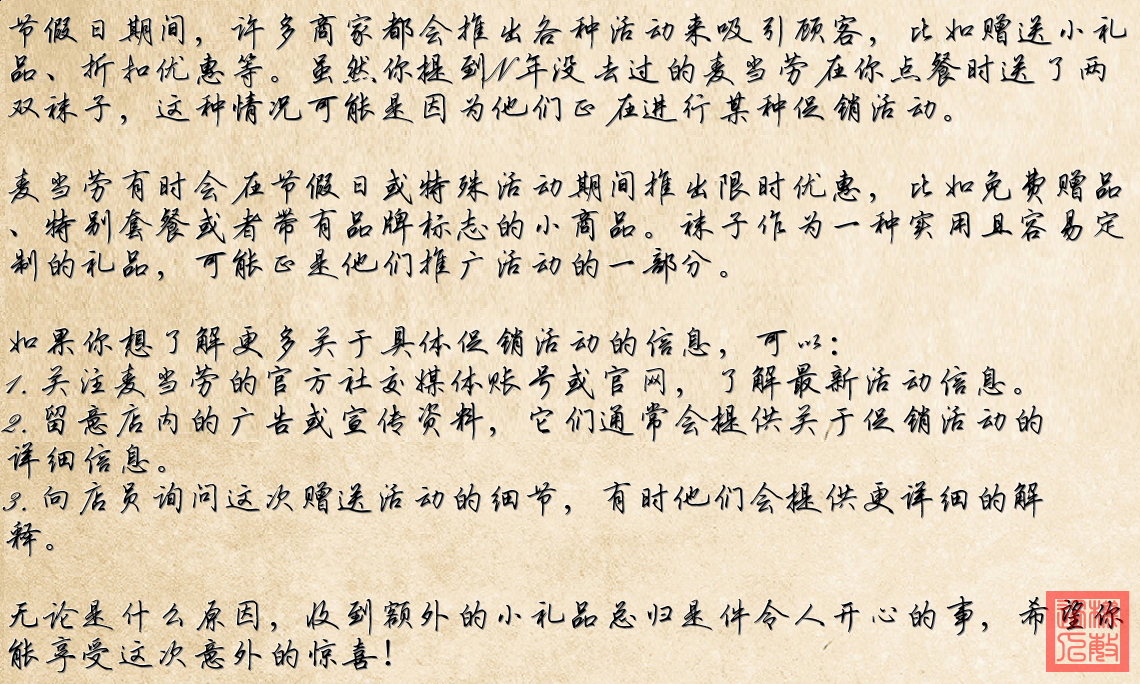 节假日期间，许多商家都会推出各种活动来吸引顾客，比如赠送小礼
品、折扣优惠等。虽然你提到N年没去过的麦当劳在你点餐时送了两
双袜子，这种情况可能是因为他们正在进行某种促销活动。
麦当劳有时会在节假日或特殊活动期间推出限时优惠，比如免费赠品
、特别套餐或者带有品牌标志的小商品。袜子作为一种实用且容易定
制的礼品，可能正是他们推广活动的一部分。
如果你想了解更多关于具体促销活动的信息，可以：
1. 关注麦当劳的官方社交媒体账号或官网，了解最新活动信息。
2. 留意店内的广告或宣传资料，它们通常会提供关于促销活动的
详细信息。
3. 向店员询问这次赠送活动的细节，有时他们会提供更详细的解
释。
无论是什么原因，收到额外的小礼品总归是件令人开心的事，希望你
能享受这次意外的惊喜！